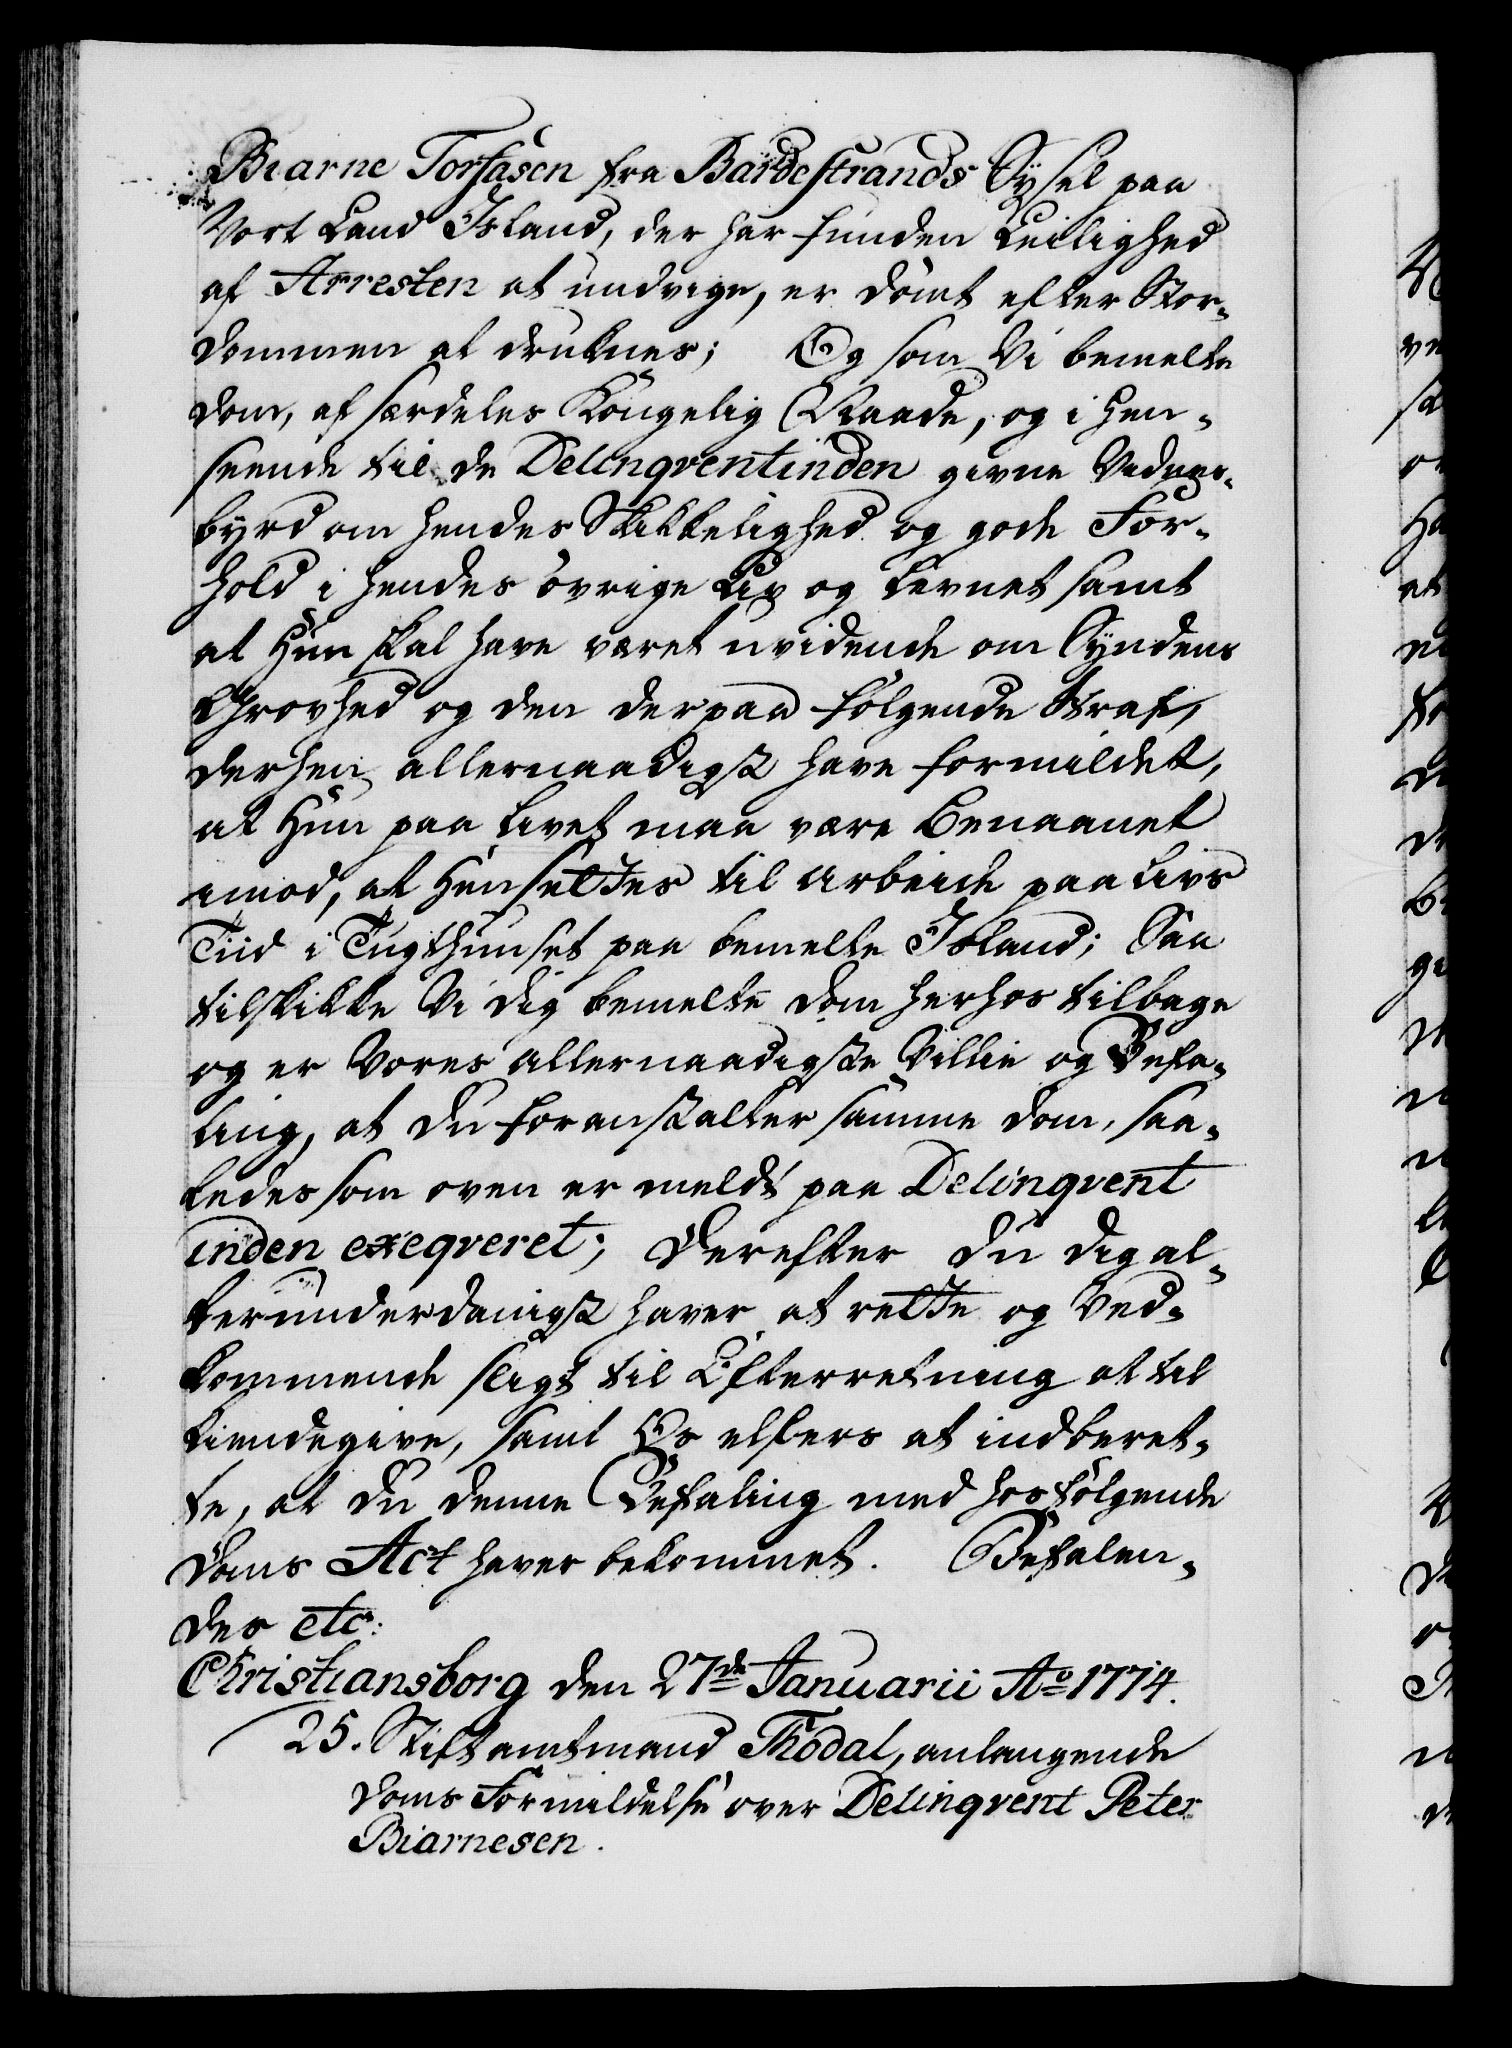 Biarne Torfasen fra Bardestrands Sysel paa
Vort Land Island, der har funden Leilighed
af Arresten at undvige, er dømt efter Stor-
dommen at druknes; Og som Vi bemelte
Dom, af særdeles Kongelig Naade, og i Hen-
seende til de Delinqventinden givne Vidnes-
byrd om hendes Skikkelighed og gode For-
hold i hendes øvrige Liv og Levnet samt
at Hun skal have været uvidende om Syndens
Grovhed og den derpaa følgende Straf,
derhen allernaadigst have formildet,
at Hun paa Livet maa være Benaadet
imod, at Hensettes til Arbeide paa Livs
Tiid i Tugthuuset paa bemelte Island; Saa
tilskikke Vi dig bemelte Dom herhos tilbage
og er Vores allernaadigste Villie og Befa-
ling, at du foranstalter samme Dom, saa-
ledes som oven er meldt paa Delinqvent
inden exeqveret; Derefter du dig al-
lerunderdanigst haver at rette og Ved-
kommende sligt til Efterretning at til
kiendegive, samt Os elskers at indberet-
te, at du denne Befaling med hosfølgende
Doms Act haver bekommet. Befalen-
des etc:
Christiansborg den 27de Januarii Ao 1774.
25. Stiftamtmand Thodal, anlangende
Doms Formildelse over Delinqvent Peter
Biarnesen.